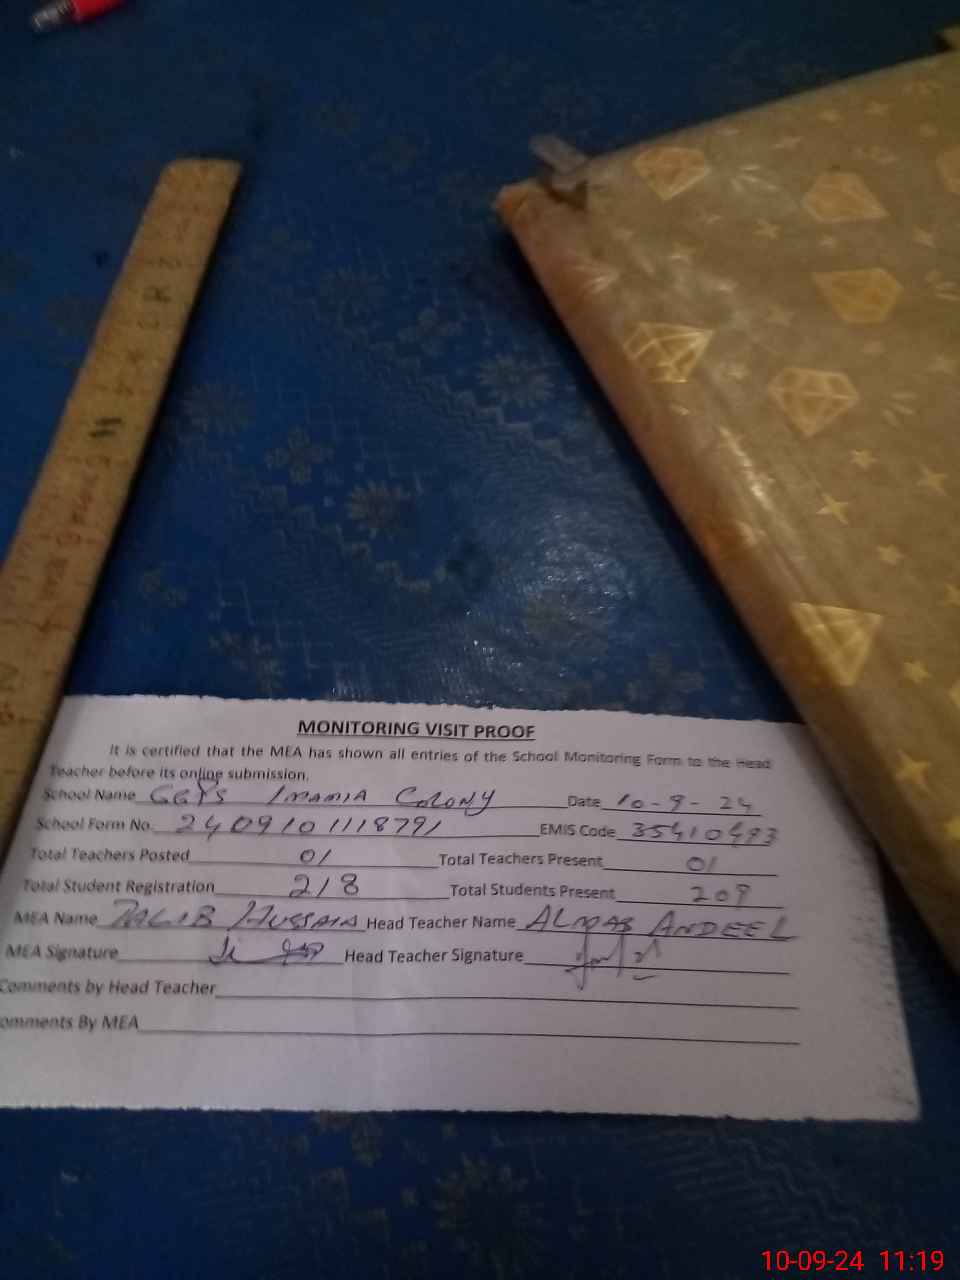 MONITORING VISIT PROOF
It is certified that the MEA has shown all entries of the School Monitoring Form to the Head
Teacher before its online submission.
School Name GGPS IMAMIA COLONY Date 10-9-24
School Form No. 2409101118791 EMIS Code 35410493
Total Teachers Posted 01 Total Teachers Present 01
Total Student Registration 218 Total Students Present 209
MEA Name TALIB HUSSAIN Head Teacher Name ALMAS ANDEEL
MEA Signature Head Teacher Signature
Comments by Head Teacher
omments By MEA
10-09-24 11:19